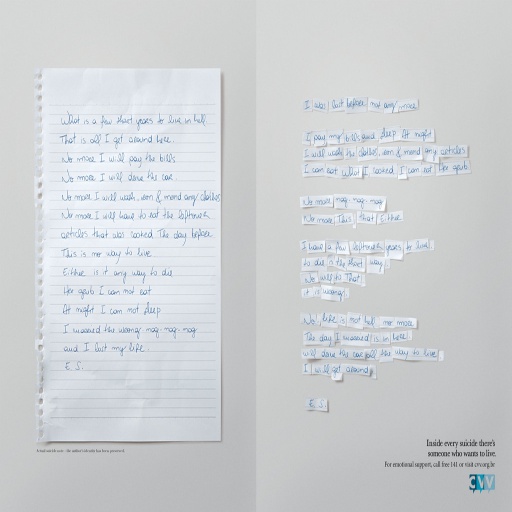 What is a few short years to live in hell.
That is all I get around here.
No more I will pay the bills
No more I will drive the car.
No more I will wash, iron & mend any clothes
No more I will have to eat the leftover
articles that was cooked The day before
This is no way to live
Either is it any way to die
Her grub I can not eat
At night I can not sleep
I married the wrong nag-nag-nag
and I lost my life.
E. S.
I was lost before not any more
I pay my bills and sleep At night
I will wash the clothes, iron & mend any articles
I can eat what I cooked I can eat Her grub
No more nag-nag-nag
No more This, that Either
I have a few leftover years to live
to die is the short way.
No will to That
it is wrong.
No, life is not hell no more
The day I married is in here
will drive the car all the way to live
I will get around
E. S.
Inside every suicide there's
someone who wants to live.
For emotional support, call free 141 or visit cvv.org.br
CVV